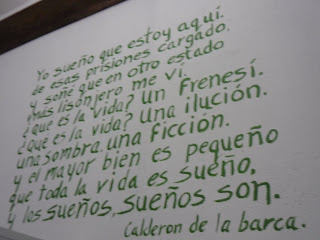 Yo sueño que estoy aquí.
de esas prisiones cargado.
y soñé que en otro estado
más lisonjero me vi.
¿qué es la vida? Un frenesí.
¿Qué es la vida? Una ilución.
una sombra. una ficción.
y el mayor bien es pequeño
que toda la vida es sueño,
y los sueños, sueños son.
Calderon de la barca.